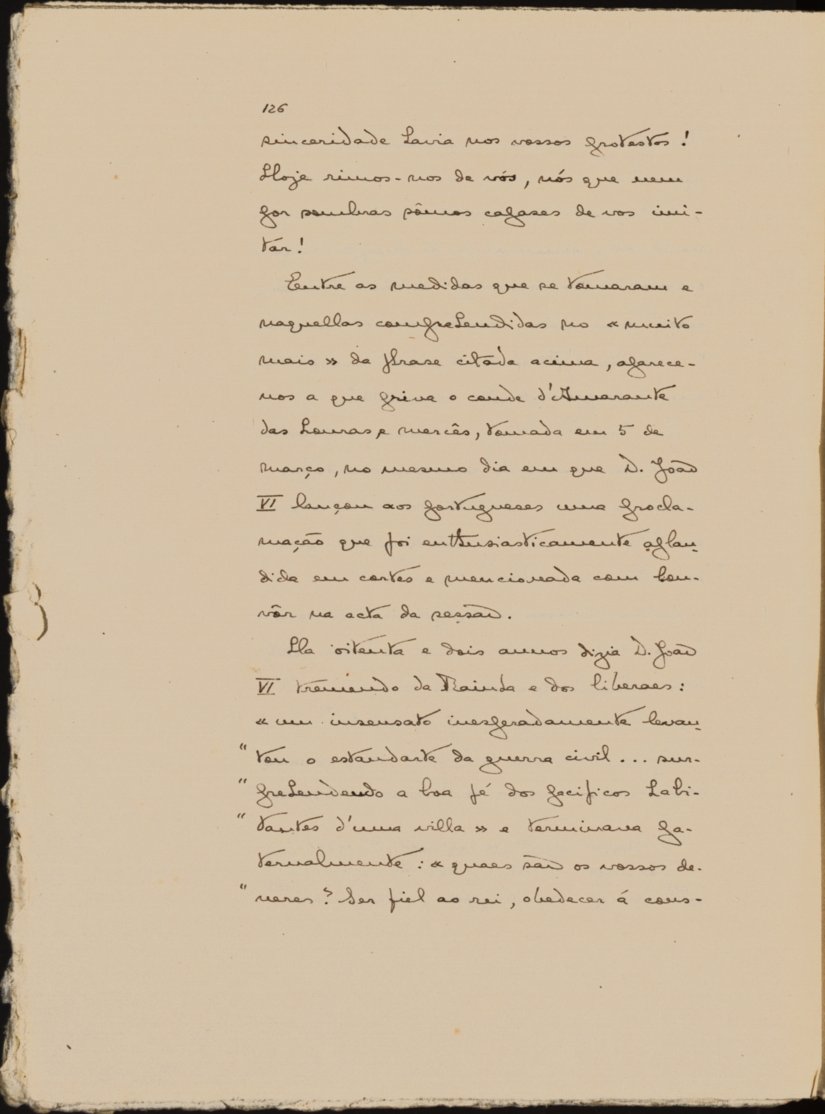 126
sinceridade havia nos vossos protestos!
Hoje rimos-nos de vós, nós que nem
por sombras sômos capases de vos imi-
tar!
Entre as medidas que se tomaram e
naquellas comprehendidas no «muito
mais» da phrase citada acima, aparece-
nos a que priva o conde d'Amarante
das honras e mercês, tomada em 5 de
março, no mesmo dia em que D. João
VI lançou aos portugueses uma procla-
mação que foi enthusiasticamente aplau-
dida em cortes e mencionada com lou-
vôr na acta da sessão.
Ha oitenta e dois annos dizia D. João
VI tremendo da Rainha e dos liberaes:
«um insensato inesperadamente levan-
" tou o estandarte da guerra civil... sur-
" prehendendo a boa fé dos pacificos habi-
" tantes d'uma villa» e terminava pa-
ternalmente: «quaes são os vossos de-
" veres? Ser fiel ao rei, obedecer á cons-